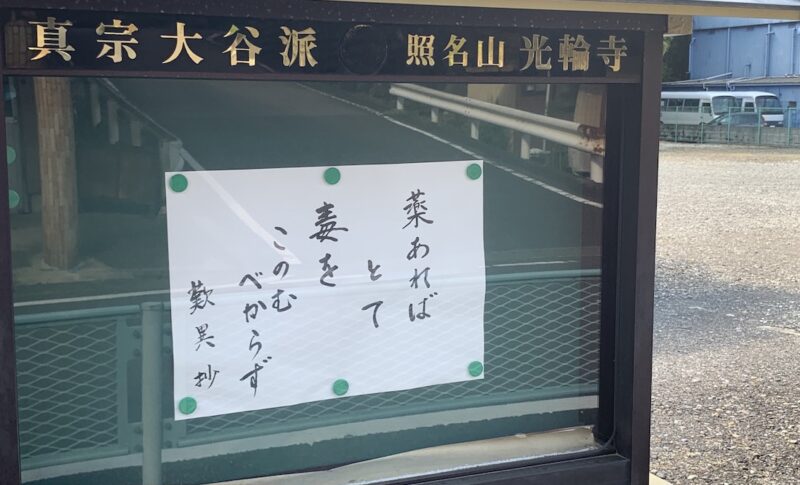 真宗大谷派 照名山 光輪寺
薬あれば
とて
毒を
このむ
べからず
歎異抄